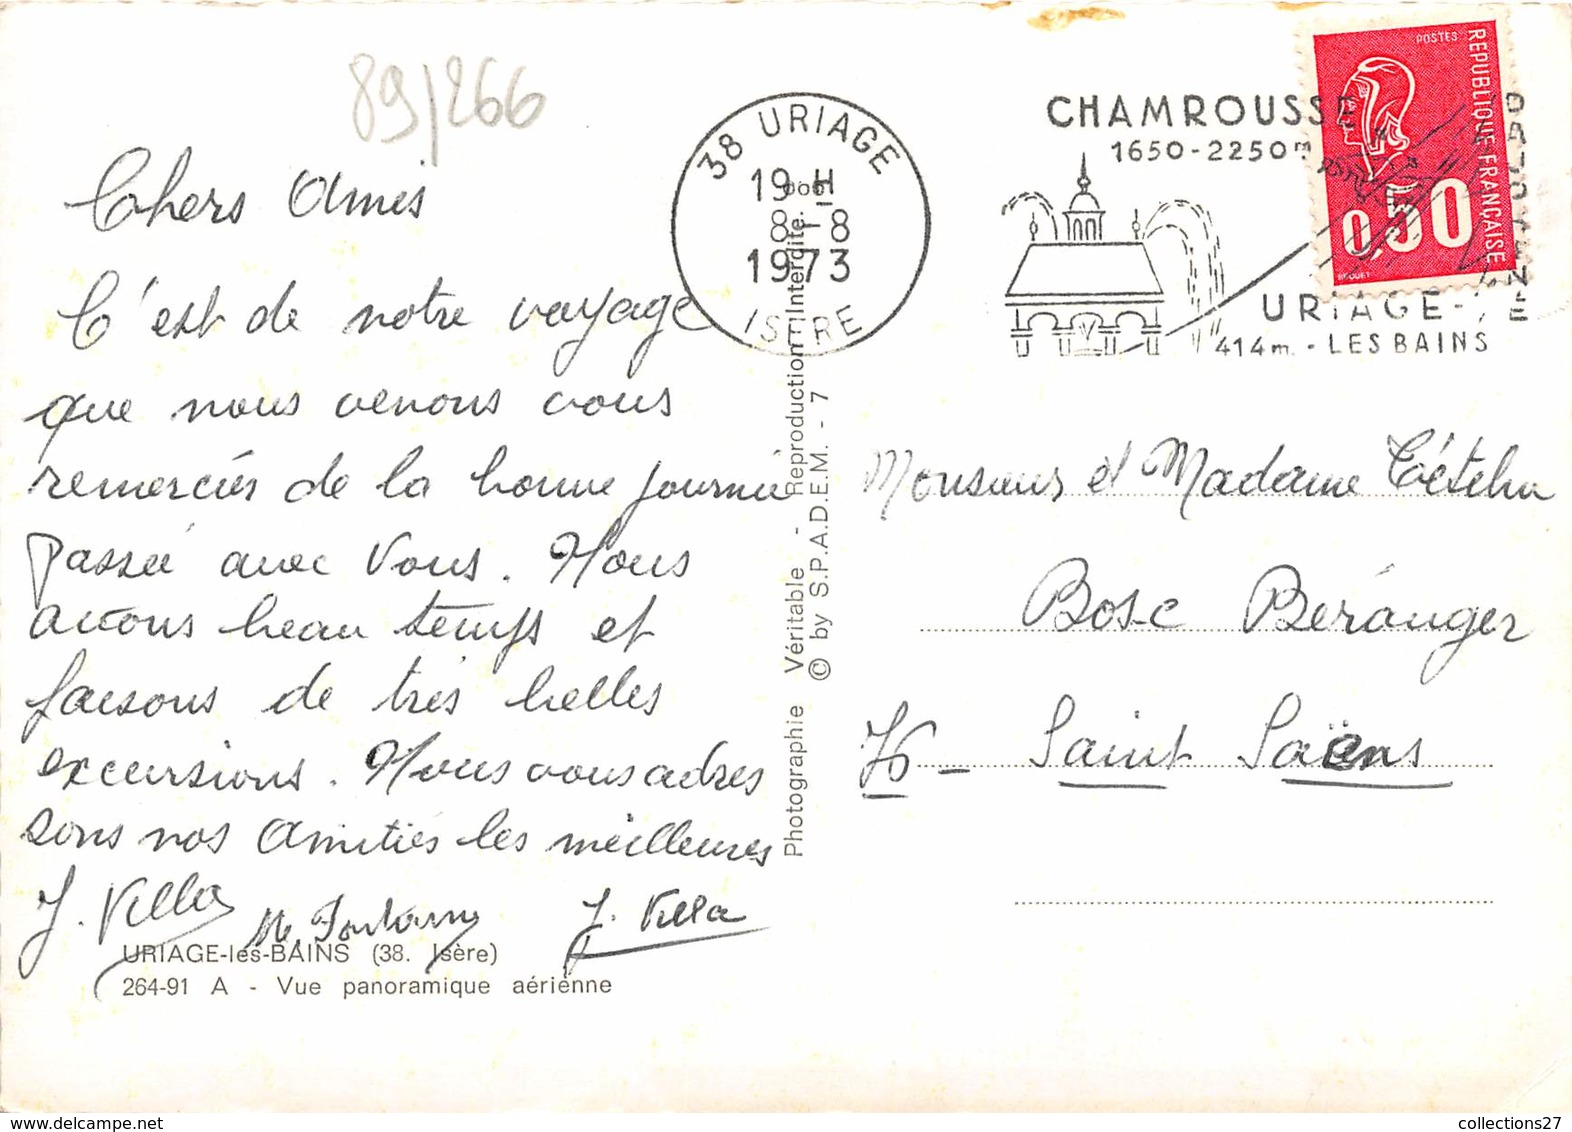 89/266
Chers Amis
C'est de notre voyage
que nous venons vous
remerciés de la bonne journée
passée avec Vous. Nous
avons beau temps et
faisons de très belles
excursions. Nous vous adres
sons nos amitiés les meilleures
J. Villa M. J. Villa
URIAGE-les-BAINS (38. Isère)
264-91 A - Vue panoramique aérienne
Photographie Véritable - Reproduction Interdite.
© by S.P.A.D.E.M. - 7
38 URIAGE
19 H
8-8
1973
ISERE
CHAMROUSSE
1650-2250m
URIAGE-
414m. - LES BAINS
POSTES
REPUBLIQUE FRANÇAISE
0,50
BEQUET
Monsieur et Madame
Bosc Béranger
76 - Saint Saëns
collections27